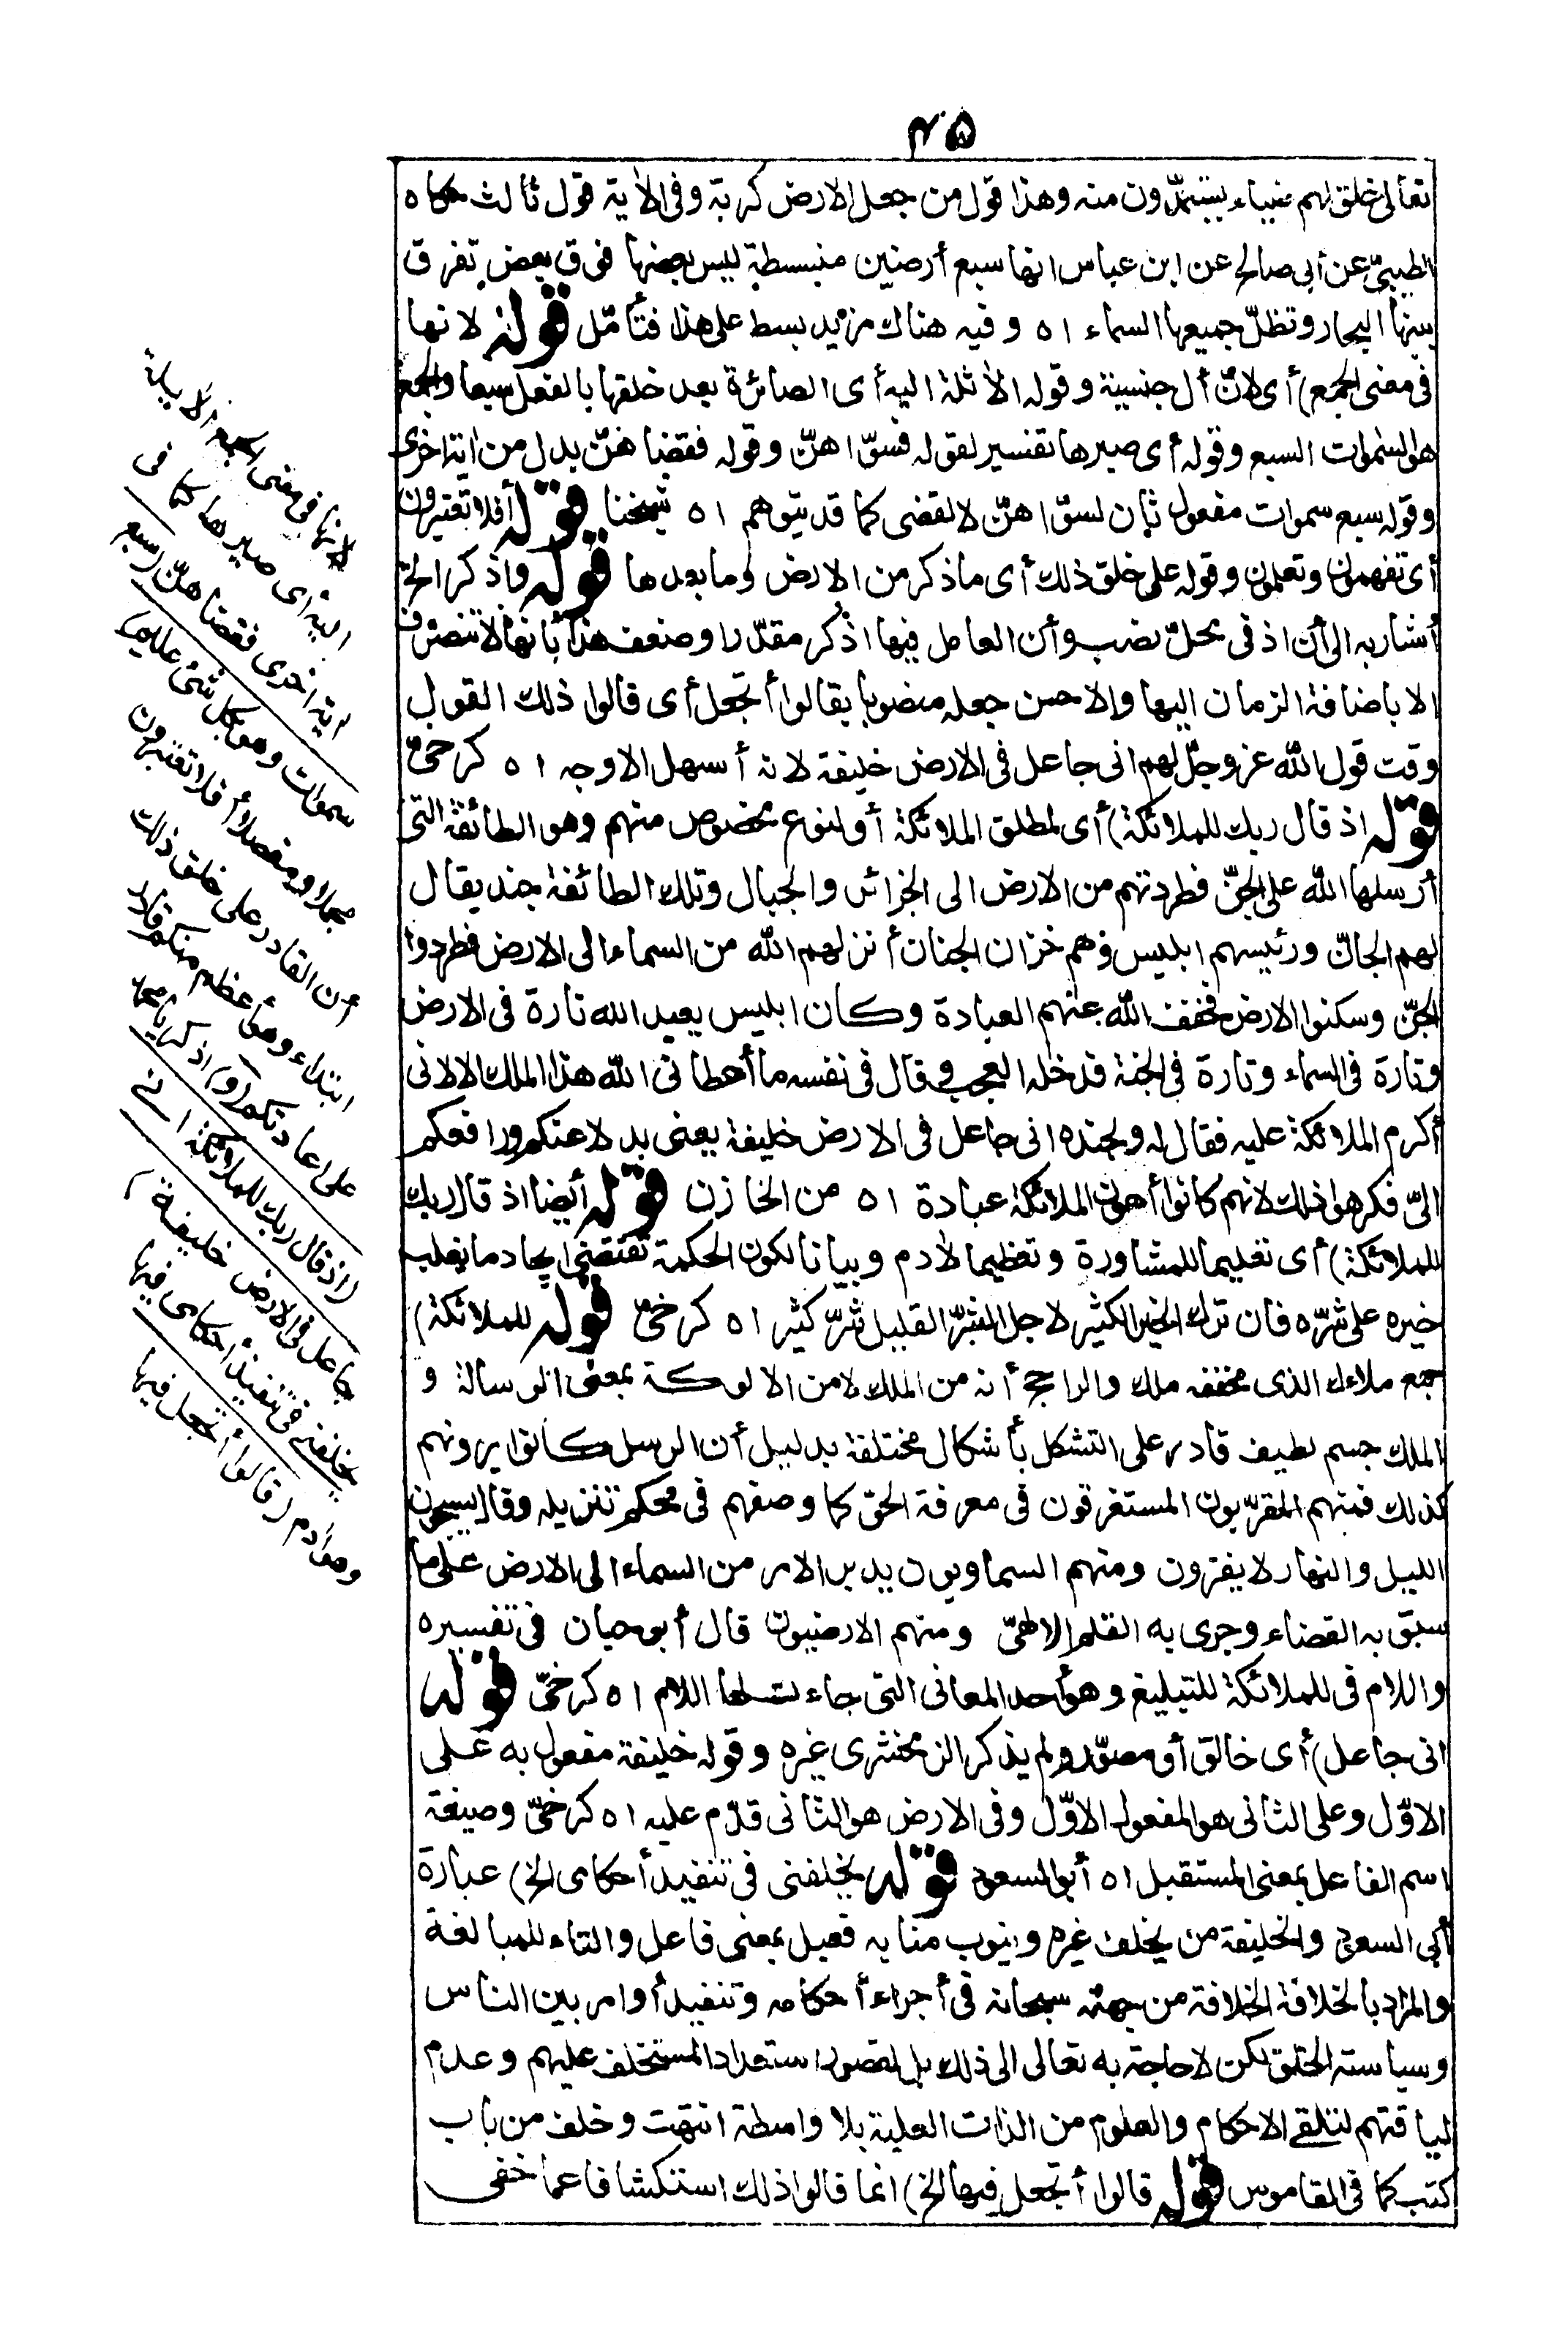 ٤٥
تعالى خلق لهم ضياء يستمدّون منه وهذا قول من جعل الارض كرية وفى الاٰية قول ثالث حكاه
الطيبىّ عن أبى صالح عن ابن عباس انها سبع أرضين منبسطة ليس بعضها فوق بعض تفرق
بينها البحار وتظلّ جميعها السماء اه وفيه هناك مزيد بسط على هذا فتأمّل قوله لانها
فى معنى الجمع) أى لانّ أل جنسية وقوله الاٰئلة اليه أى الصائرة بعد خلقها بالفعل سبعا والجمع
هو السموات السبع وقوله أى صيرها تفسير لقوله فسوّاهنّ وقوله فقضاهنّ بدل من اٰية اخرى
وقوله سبع سموات مفعول ثان لسوّاهنّ لا لقضى كما قد يتوهم اه شيخنا قوله أفلا تعتبرون
أى تفهمون وتعلمون وقوله على خلق ذلك أى ما ذكر من الارض وما بعدها قوله واذكر الخ
أشار به الى أن اذ فى محلّ نصب وأن العامل فيها اذكر مقدّرا وضعف هذا بأنها لا تتصرّف
الا باضافة الزمان اليها والاحسن جعله منصوبا بقالوا أتجعل أى قالوا ذلك القول
وقت قول الله عزوجلّ لهم انى جاعل فى الارض خليفة لانه أسهل الاوجه اه كرخىّ
قوله اذ قال ربك للملائكة) أى لمطلق الملائكة أو لنوع مخصوص منهم وهو الطائفة التى
أرسلها الله على الجنّ فطردتهم من الارض الى الجزائر والجبال وتلك الطائفة جند يقال
لهم الجانّ ورئيسهم ابليس وهم خزان الجنان أنزلهم الله من السماء الى الارض فطردوا
الجنّ وسكنوا الارض فخفف الله عنهم العبادة وكان ابليس يعبد الله تارة فى الارض
وتارة فى السماء وتارة فى الجنة فدخله العجب وقال فى نفسه ما أعطانى الله هذا الملك الا لانى
أكرم الملائكة عليه فقال له ولجنده انى جاعل فى الارض خليفة يعنى بدلا عنكم ورافعكم
الىّ فكرهوا ذلك لانهم كانوا أهون الملائكة عبادة اه من الخازن قوله أيضا اذ قال ربك
للملائكة) أى تعليما للمشاورة وتعظيما لاٰدم وبيانا لكون الحكمة تقتضى ايجاد ما يغلب
خيره على شرّه فان ترك الخير الكثير لاجل الشرّ القليل شرّ كثير اه كرخىّ قوله للملائكة)
جمع ملاءك الذى مخففه ملك والراجح أنه من الملك لا من الالوكة بمعنى الرسالة و
الملك جسم لطيف قادر على التشكل بأشكال مختلفة بدليل أن الرسل كانوا يرونهم
كذلك فمنهم المقرّبون المستغرقون فى معرفة الحقّ كما وصفهم فى محكم تنزيله وقال يسبحون
الليل والنهار لا يفترون ومنهم السماويون يدبر الامر من السماء الى الارض على ما
سبق به القضاء وجرى به القلم الالهىّ ومنهم الارضيون قال أبوحيان فى تفسيره
واللام فى للملائكة للتبليغ وهو أحد المعانى التى جاءت لها اللام اه كرخىّ قوله
انى جاعل) أى خالق أو مصوّر ولم يذكر الزمخشرى غيره وقوله خليفة مفعول به على
الاوّل وعلى الثانى هو المفعول الاوّل وفى الارض هو الثانى قدّم عليه اه كرخىّ وصيغة
اسم الفاعل بمعنى المستقبل اه أبوالسعود قوله يخلفنى فى تنفيذ أحكامى الخ) عبارة
أبى السعود والخليفة من يخلف غيره وينوب منابه فعيل بمعنى فاعل والتاء للمبالغة
والمراد بالخلافة الخلافة من جهته سبحانه فى أجراء أحكامه وتنفيذ أوامر بين الناس
وسياسة الخلق لكن لا لحاجة به تعالى الى ذلك بل لقصور استعداد المستخلف عليهم وعدم
لياقتهم لتلقى الاحكام والعلوم من الذات العلية بلا واسطة انتهت وخلف من باب
كتب كما فى القاموس قوله قالوا أتجعل فيها الخ) انما قالوا ذلك استكشافا عما خفى
لانها فى معنى الجمع الاٰيلة
اليه أى صيرها كما فى
اٰية اخرى فقضاهنّ (سبع
سموات وهو بكل شئ عليم)
مجملا ومفصلا أفلا تعتبرون
أن القادر على خلق ذلك
ابتداء وهو أعظم منكم قادر
على اعادتكم (و) اذكر يا محمد
(اذ قال ربك للملائكة انى
جاعل فى الارض خليفة)
يخلفنى فى تنفيذ أحكامى فيها
وهو اٰدم (قالوا أتجعل فيها